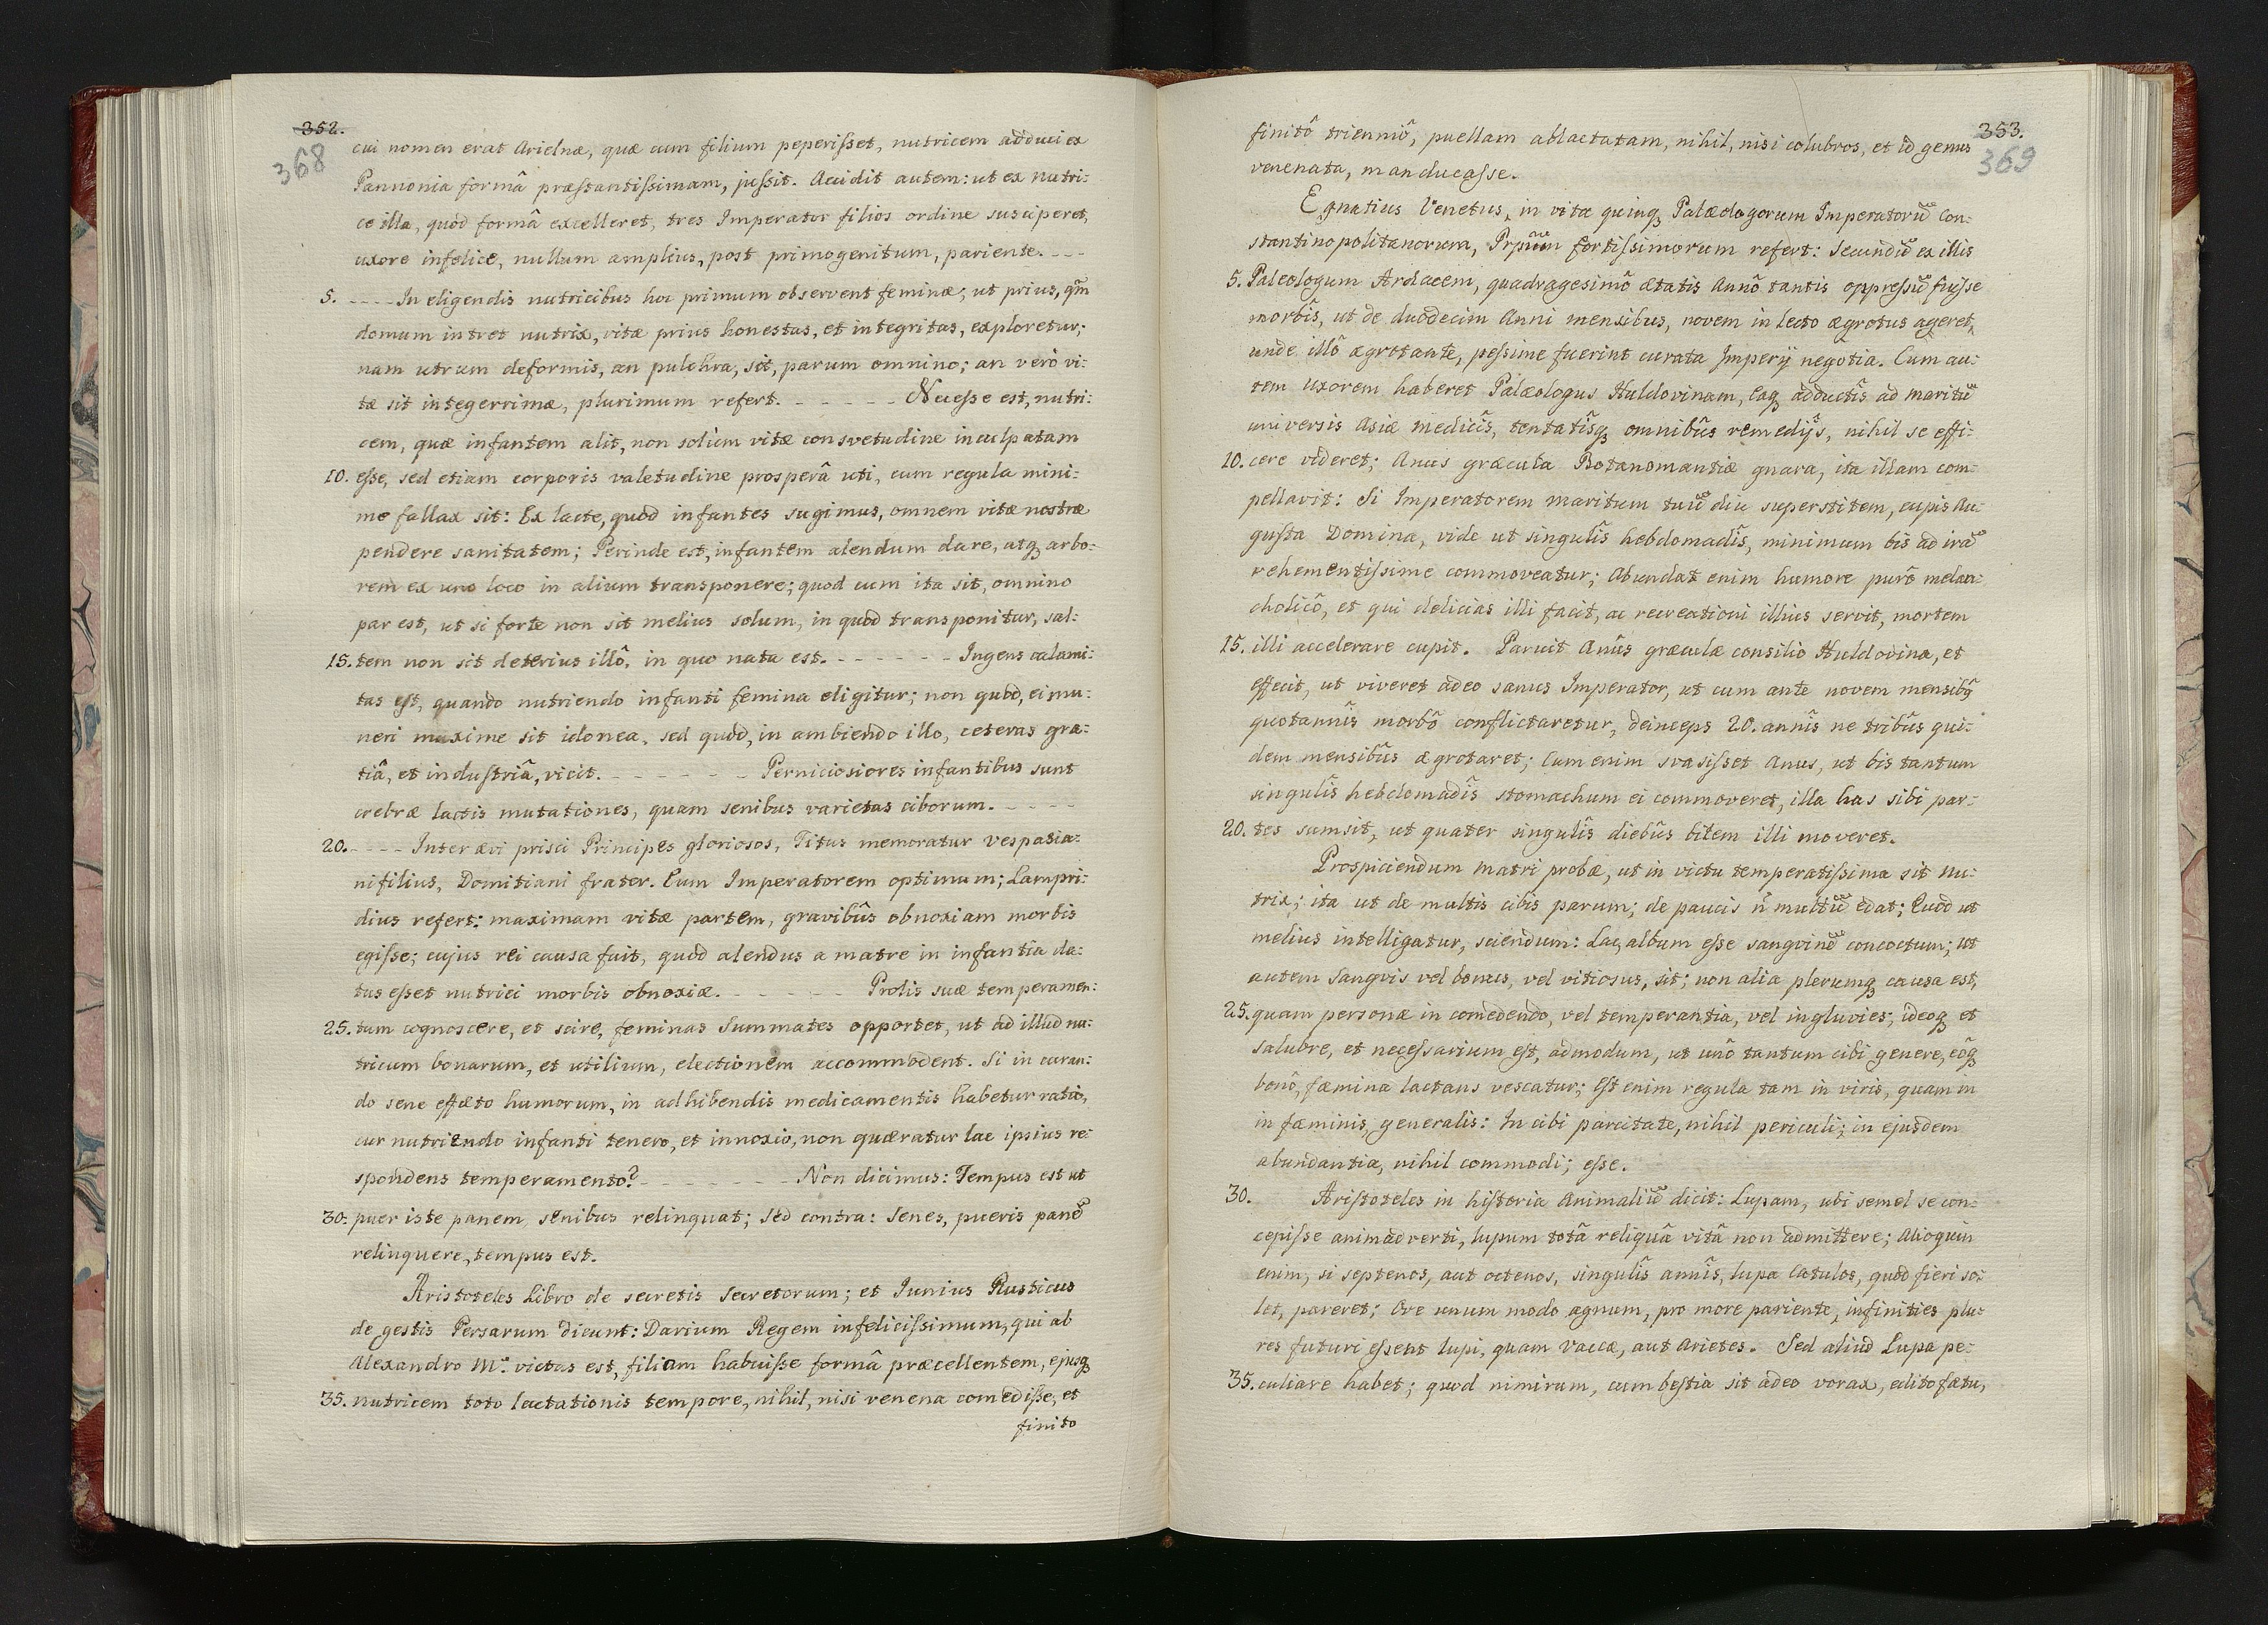 352.
368
cui nomen erat Arielnæ, quæ cum filium peperisset, nutricem adduci ex
Pannonia formâ præstantissimam, jussit. Accidit autem: ut ex nutri:
ce illa, quod formâ excelleret, tres Imperator filios ordine susciperet,
uxore infelice, nullum amplius, post primogenitum, pariente. ---
5. ---- In eligendis nutricibus hoc primum observent feminæ; ut prius, qm̃
domum intret nutrix, vitæ prius honestas, et integritas, exploretur;
nam utrum deformis, an pulchra, sit, parum omnino; an verò vi:
tæ sit integerrimæ, plurimum refert. ----- Necesse est, nutri:
cem, quæ infantem alit, non solùm vitæ consvetudine inculpatam
10. esse, sed etiam corporis valetudine prosperâ uti, cum regula mini:
me fallax sit: Ex lacte, quod infantes sugimus, omnem vitæ nostræ
pendere sanitatem; Perinde est, infantem alendum dare, atq3 arbo:
rem ex uno loco in alium transponere; quod cum ita sit, omnino
par est, ut si forte non sit melius solum, in quod transponitur, sal:
15. tem non sit deterius illô, in quo nata est. ------ Ingens calami:
tas est, quando nutriendo infanti femina eligitur; non quod, ei mu:
neri maxime sit idonea, sed quod, in ambiendo illo, ceteras gra:
tiâ, et industriâ, vicit. ------- Perniciosiores infantibus sunt
crebræ lactis mutationes, quam senibus varietas ciborum. ----
20. ---- Inter ævi prisci Principes gloriosos, Titus memoratur Vespasia:
ni filius, Domitiani frater. Eum Imperatorem optimum; Lampri:
dius refert: maximam vitæ partem, gravibûs obnoxiam morbis
egisse; cujus rei causa fuit, quod alendus a matre in infantia da:
tus esset nutrici morbis obnoxiæ. ------ Prolis suæ temperamen:
25. tum cognoscere, et scire, feminas Summates opportet, ut ad illud nu:
tricum bonarum, et utilium, electionem accommodent. Si in curan:
do sene effæto humorum, in adhibendis medicamentis habetur ratio,
cur nutriendo infanti tenero, et innoxio, non quæratur lac ipsius re:
spondens temperamento? ------- Non dicimus: Tempus est ut
30. puer iste panem, senibus relinquat; sed contra: Senes, pueris panẽ
relinquere, tempus est.
Aristoteles Libro de secretis Secretorum; et Iunius Rusticus
de gestis Persarum dicunt: Darium Regem infelicissimum, qui ab
Alexandro Mo. victus est, filiam habuisse formâ præcellentem, ejusq3
35. nutricem toto lactationis tempore, nihil, nisi venena comedisse, et
finito
353.
369
finitô trienniô, puellam ablactatam, nihil, nisi colubros, et id genus
venenata, manducasse.
Egnatius Venetus, in vita quinq3 Palæologorum Imperatorũ Con:
stantinopolitanorum, Prpũm fortissimorum refert: Secundũ ex illis
5. Paleologum Ardacem, quadragesimô ætatis Annô tantis oppressũ fuisse
morbîs, ut de duodecim Anni mensibus, novem in lecto ægrotus ageret,
unde illô ægrotante, pessime fuerint curata Imperij negotia. Cum au:
tem Uxorem haberet Palæologus Huldovinam, Eaq3 adductîs ad maritũ
universis Asiæ medicîs, tentatîsq3 omnibûs remedijs, nihil se effi:
10. cere videret; Anus græcula Botanomantiæ gnara, ita illam com:
pellavit: Si Imperatorem maritum tuũ diu superstitem, cupis Au:
gusta Domina, vide ut singulîs hebdomadîs, minimum bis ad irã
vehementissime commoveatur; Abundat enim humore purô melan:
cholicô, et qui delicias illi facit, ac recreationi illius servit, mortem
15. illi accelerare cupit. Paruit Anûs græculæ consilio Huldovina, et
effecit, ut viveret adeo sanus Imperator, ut cum ante novem mensibq3
quotannîs morbô conflictaretur, deinceps 20. annîs ne tribûs qui:
dem mensibûs ægrotaret; Cum enim svasisset Anus, ut bis tantum
singulîs hebdomadîs stomachum ei commoveret, illa has sibi par:
20. tes sumsit, ut quater singulîs diebûs bilem illi moveret.
Prospiciendum matri probæ, ut in victu temperatissima sit nu:
trix; ita ut de multis cibis parum; de paucis ñ multũ edat; Quod ut
melius intelligatur, sciendum: Lac, album esse sangvinẽ concoctum; Ut
autem Sangvis vel bonus, vel vitiosus, sit; non alia plerumq3 causa est,
25. quam personæ in comedendo, vel temperantia, vel ingluvies; ideoq3 et
salubre, et necessarium est, admodum, ut unô tantum cibi genere, eôq3
bonô, fæmina lactans vescatur; Est enim regula tam in viris, quam in
in fæminis, generalis: In cibi parcitate, nihil periculi; in ejusdem
abundantia, nihil commodi; esse.
30. Aristoteles in historia Animaliũ dicit: Lupam, ubi semel se con:
cepisse animadverti, lupum totâ reliquâ vitâ non admittere; Alioquin
enim, si septenos, aut octenos, singulîs annîs, lupa Catulos, quod fieri so:
let, pareret; Ove unum modo agnum, pro more pariente, infinities plu:
res futuri essent lupi, quam Vaccæ, aut Arietes. Sed aliud Lupa pe:
35. culiare habet; quod nimirum, cum bestia sit adeo vorax, edito fætu,